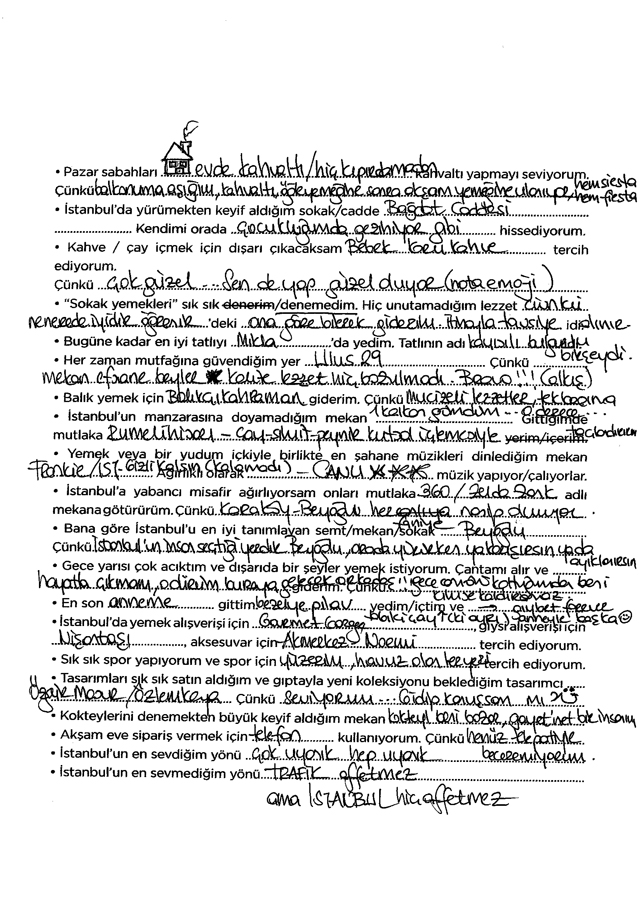 • Pazar sabahları evde kahvaltı/hiç kıpırdamadan kahvaltı yapmayı seviyorum.
Çünkü balkonuma aşığım, kahvaltı, öğle yemeğine sonra akşam yemeğine hem siesta
hem fiesta
• İstanbul'da yürümekten keyif aldığım sokak/cadde Bağdat Caddesi
Kendimi orada çocukluğumda geziniyor gibi hissediyorum.
• Kahve / çay içmek için dışarı çıkacaksam Bebek kahve tercih
ediyorum.
Çünkü çok güzel... Sen de yap güzel diyor (nota emoji)
• "Sokak yemekleri" sık sık denerim/denemedim. Hiç unutamadığım lezzet çünkü
ne nerede iyidir öğrenir 'deki ona göre bilerek giderim. İtinayla tavsiye
• Bugüne kadar en iyi tatlıyı Mikla 'da yedim. Tatlının adı kayısılı
bir şeydi.
• Her zaman mutfağına güvendiğim yer Ulus 29 Çünkü
mekan efsane beyler kalite lezzet hiç bozulmadı. Bravo!!! (alkış)
• Balık yemek için Balıkçı Kahraman giderim. Çünkü Mucizeli lezzetler, tek başına
• İstanbul'un manzarasına doyamadığım mekan 1 balkon gördüm Gittiğimde
mutlaka Rumelihisarı - çay-simit-peynir yerim/içerim.
• Yemek veya bir yudum içkiyle birlikte en şahane müzikleri dinlediğim mekan
Frankie/IST - Gizli kalsın (kalamadı) Ağırlıklı olarak - CANLI müzik yapıyor/çalıyorlar.
• İstanbul'a yabancı misafir ağırlıyorsam onları mutlaka 360 / Zelda Zonk adlı
mekana götürürüm. Çünkü Karaköy-Beyoğlu
• Bana göre İstanbul'u en iyi tanımlayan semt/mekan/sokak Beyoğlu
Çünkü İstanbul'un insan seçtiği yerdir Beyoğlu, orada yürürken ya kaybolursun ya da
ayıklanırsın
• Gece yarısı çok acıktım ve dışarıda bir şeyler yemek istiyorum. Çantamı alır ve
hayatta çıkmam, o dürüm buraya gelecek arkadaş!! giderim. Çünkü gece beni
• En son anneme gittim bezelye pilav yedim/içtim ve
başka ☺
• İstanbul'da yemek alışverişi için Gurmet Garage, giysi alışverişi için
Nişantaşı, aksesuvar için Akmerkez Noemi tercih ederim.
• Sık sık spor yapıyorum ve spor için yüzerim, havuz olan her yeri tercih ediyorum.
• Tasarımları sık sık satın aldığım ve gıptayla yeni koleksiyonu beklediğim tasarımcı
Özgür Masur/Özlem Kaya Çünkü seviyorum... Gidip konuşsan mı?
• Kokteylerini denemekten büyük keyif aldığım mekan kokteyl beni bozar, gayet net bir insanım
• Akşam eve sipariş vermek için telefon kullanıyorum. Çünkü henüz telepatiye
• İstanbul'un en sevdiğim yönü çok uyanık hep uyanık beceremiyorum.
• İstanbul'un en sevmediğim yönü TRAFİK affetmez
ama İSTANBUL hiç affetmez